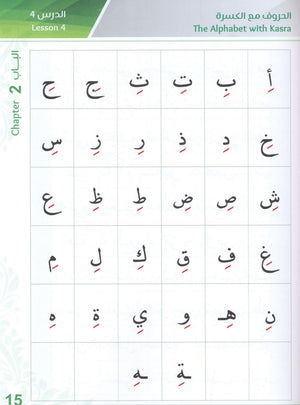 الحروف مع الكسرة
The Alphabet with Kasra
الدرس 4
Lesson 4
الباب 2 Chapter
أِ بِ تِ ثِ جِ حِ
خِ دِ ذِ رِ زِ سِ
شِ صِ ضِ طِ ظِ عِ
غِ فِ قِ كِ لِ مِ
نِ هِـ وِ يِ ةِ هِ
ـةِ ـهِ
15